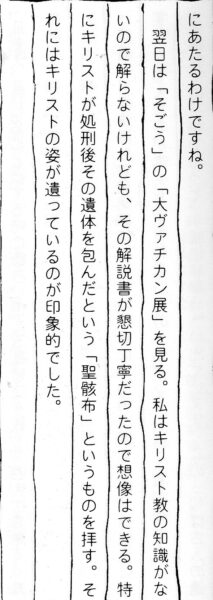 にあたるわけですね。
　翌日は「そごう」の「大ヴァチカン展」を見る。私はキリスト教の知識がな
いので解らないけれども、その解説書が懇切丁寧だったので想像はできる。特
にキリストが処刑後その遺体を包んだという「聖骸布」というものを拝す。そ
れにはキリストの姿が遺っているのが印象的でした。